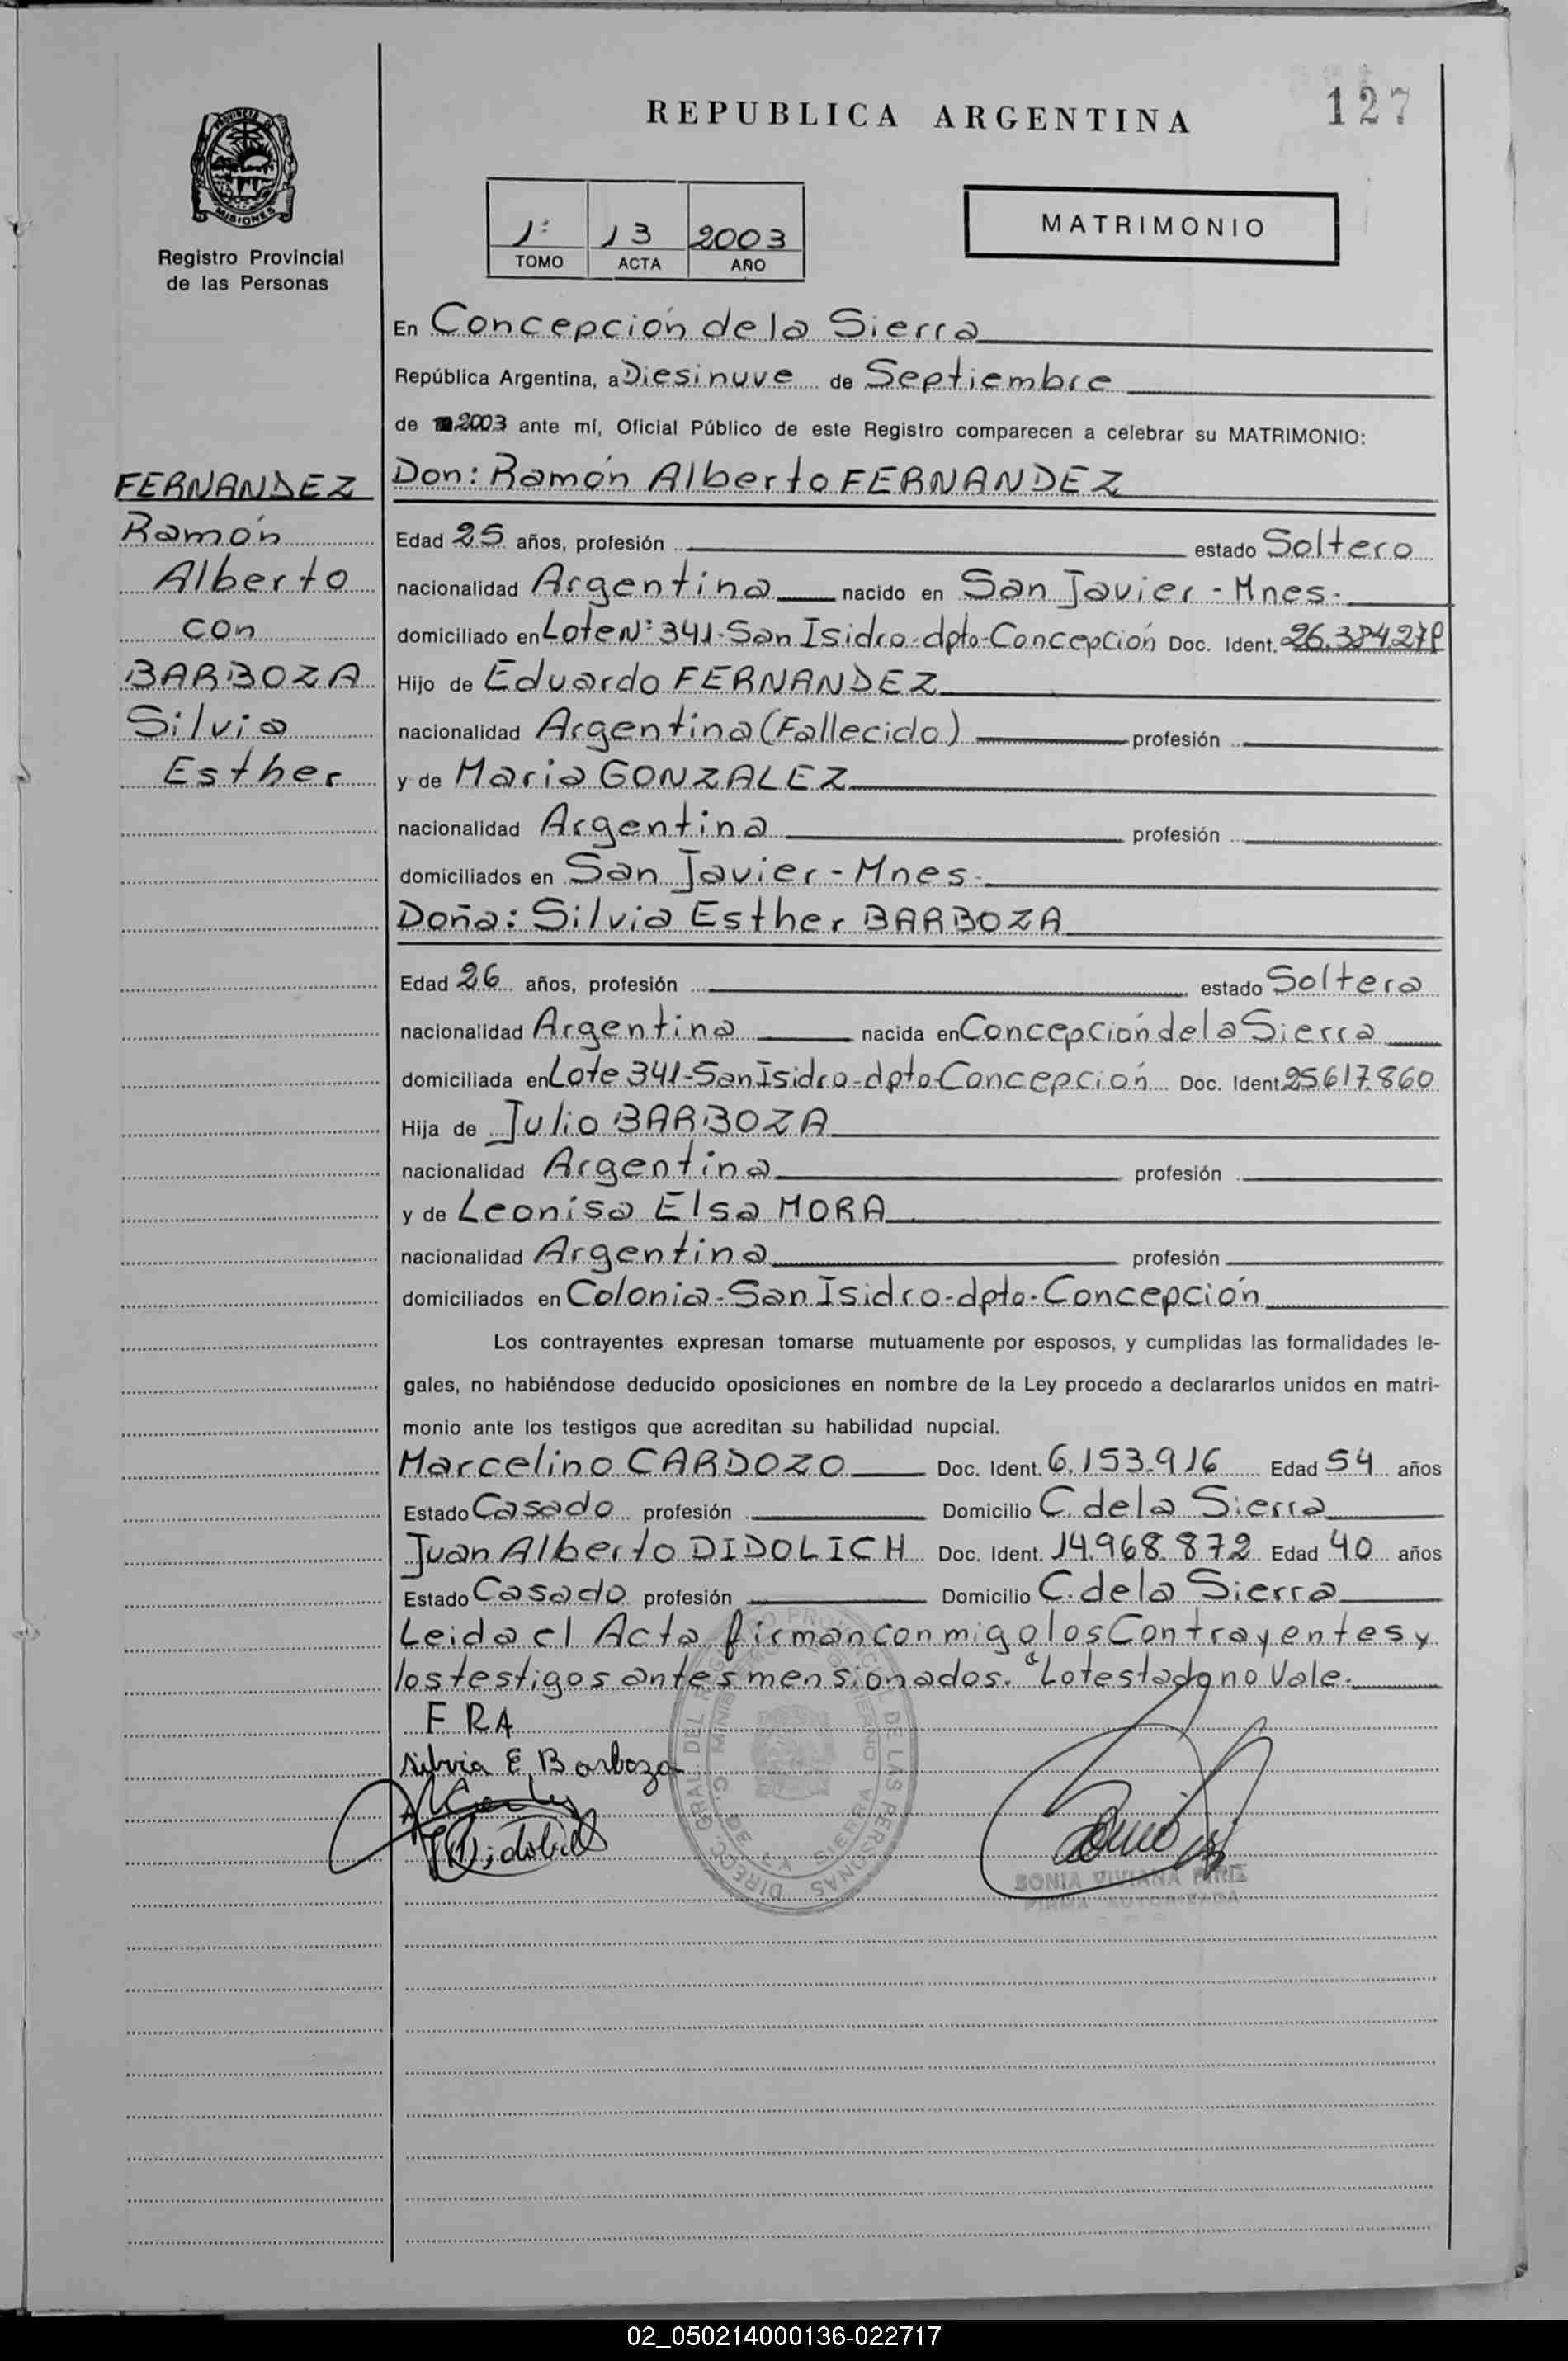 REPUBLICA ARGENTINA
127
PROVINCIA D
MISIONES
Registro Provincial
de las Personas
1º 13 2003
TOMO ACTA AÑO
MATRIMONIO
En Concepción de la Sierra
República Argentina, a Diesinuve de Septiembre
de 2003 ante mí, Oficial Público de este Registro comparecen a celebrar su MATRIMONIO:
FERNANDEZ
Ramón
Alberto
con
BARBOZA
Silvia
Esther
Don: Ramón Alberto FERNANDEZ
Edad 25 años, profesión estado Soltero
nacionalidad Argentina nacido en San Javier - Mnes.
domiciliado en Lote Nº 341-San Isidro-dpto-Concepción Doc. Ident.
Hijo de Eduardo FERNANDEZ
nacionalidad Argentina (Fallecido) profesión
y de Maria GONZALEZ
nacionalidad Argentina profesión
domiciliados en San Javier - Mnes.
Doña: Silvia Esther BARBOZA
Edad 26 años, profesión estado Soltera
nacionalidad Argentina nacida en Concepción de la Sierra
domiciliada en Lote 341-San Isidro-dpto-Concepción Doc. Ident. 25617.860
Hija de Julio BARBOZA
nacionalidad Argentina profesión
y de Leonisa Elsa MORA
nacionalidad Argentina profesión
domiciliados en Colonia-San Isidro-dpto-Concepción
Los contrayentes expresan tomarse mutuamente por esposos, y cumplidas las formalidades le-
gales, no habiéndose deducido oposiciones en nombre de la Ley procedo a declararlos unidos en matri-
monio ante los testigos que acreditan su habilidad nupcial.
Marcelino CARDOZO Doc. Ident. 6.153.916 Edad 54 años
Estado Casado profesión Domicilio C. de la Sierra
Juan Alberto DIDOLICH Doc. Ident. 14.968.872 Edad 40 años
Estado Casado profesión Domicilio C. de la Sierra
Leida el Acta firman conmigo los Contrayentes y
los testigos antes mensionados. Lo testado no Vale.
F R A
Silvia E Barboza
SONIA VIVIANA
FIRMA AUTORIZADA
DIRECC. GRAL. DEL REGISTRO PROVINCIAL DE LAS PERSONAS
C. DE LA SIERRA
02_050214000136-022717